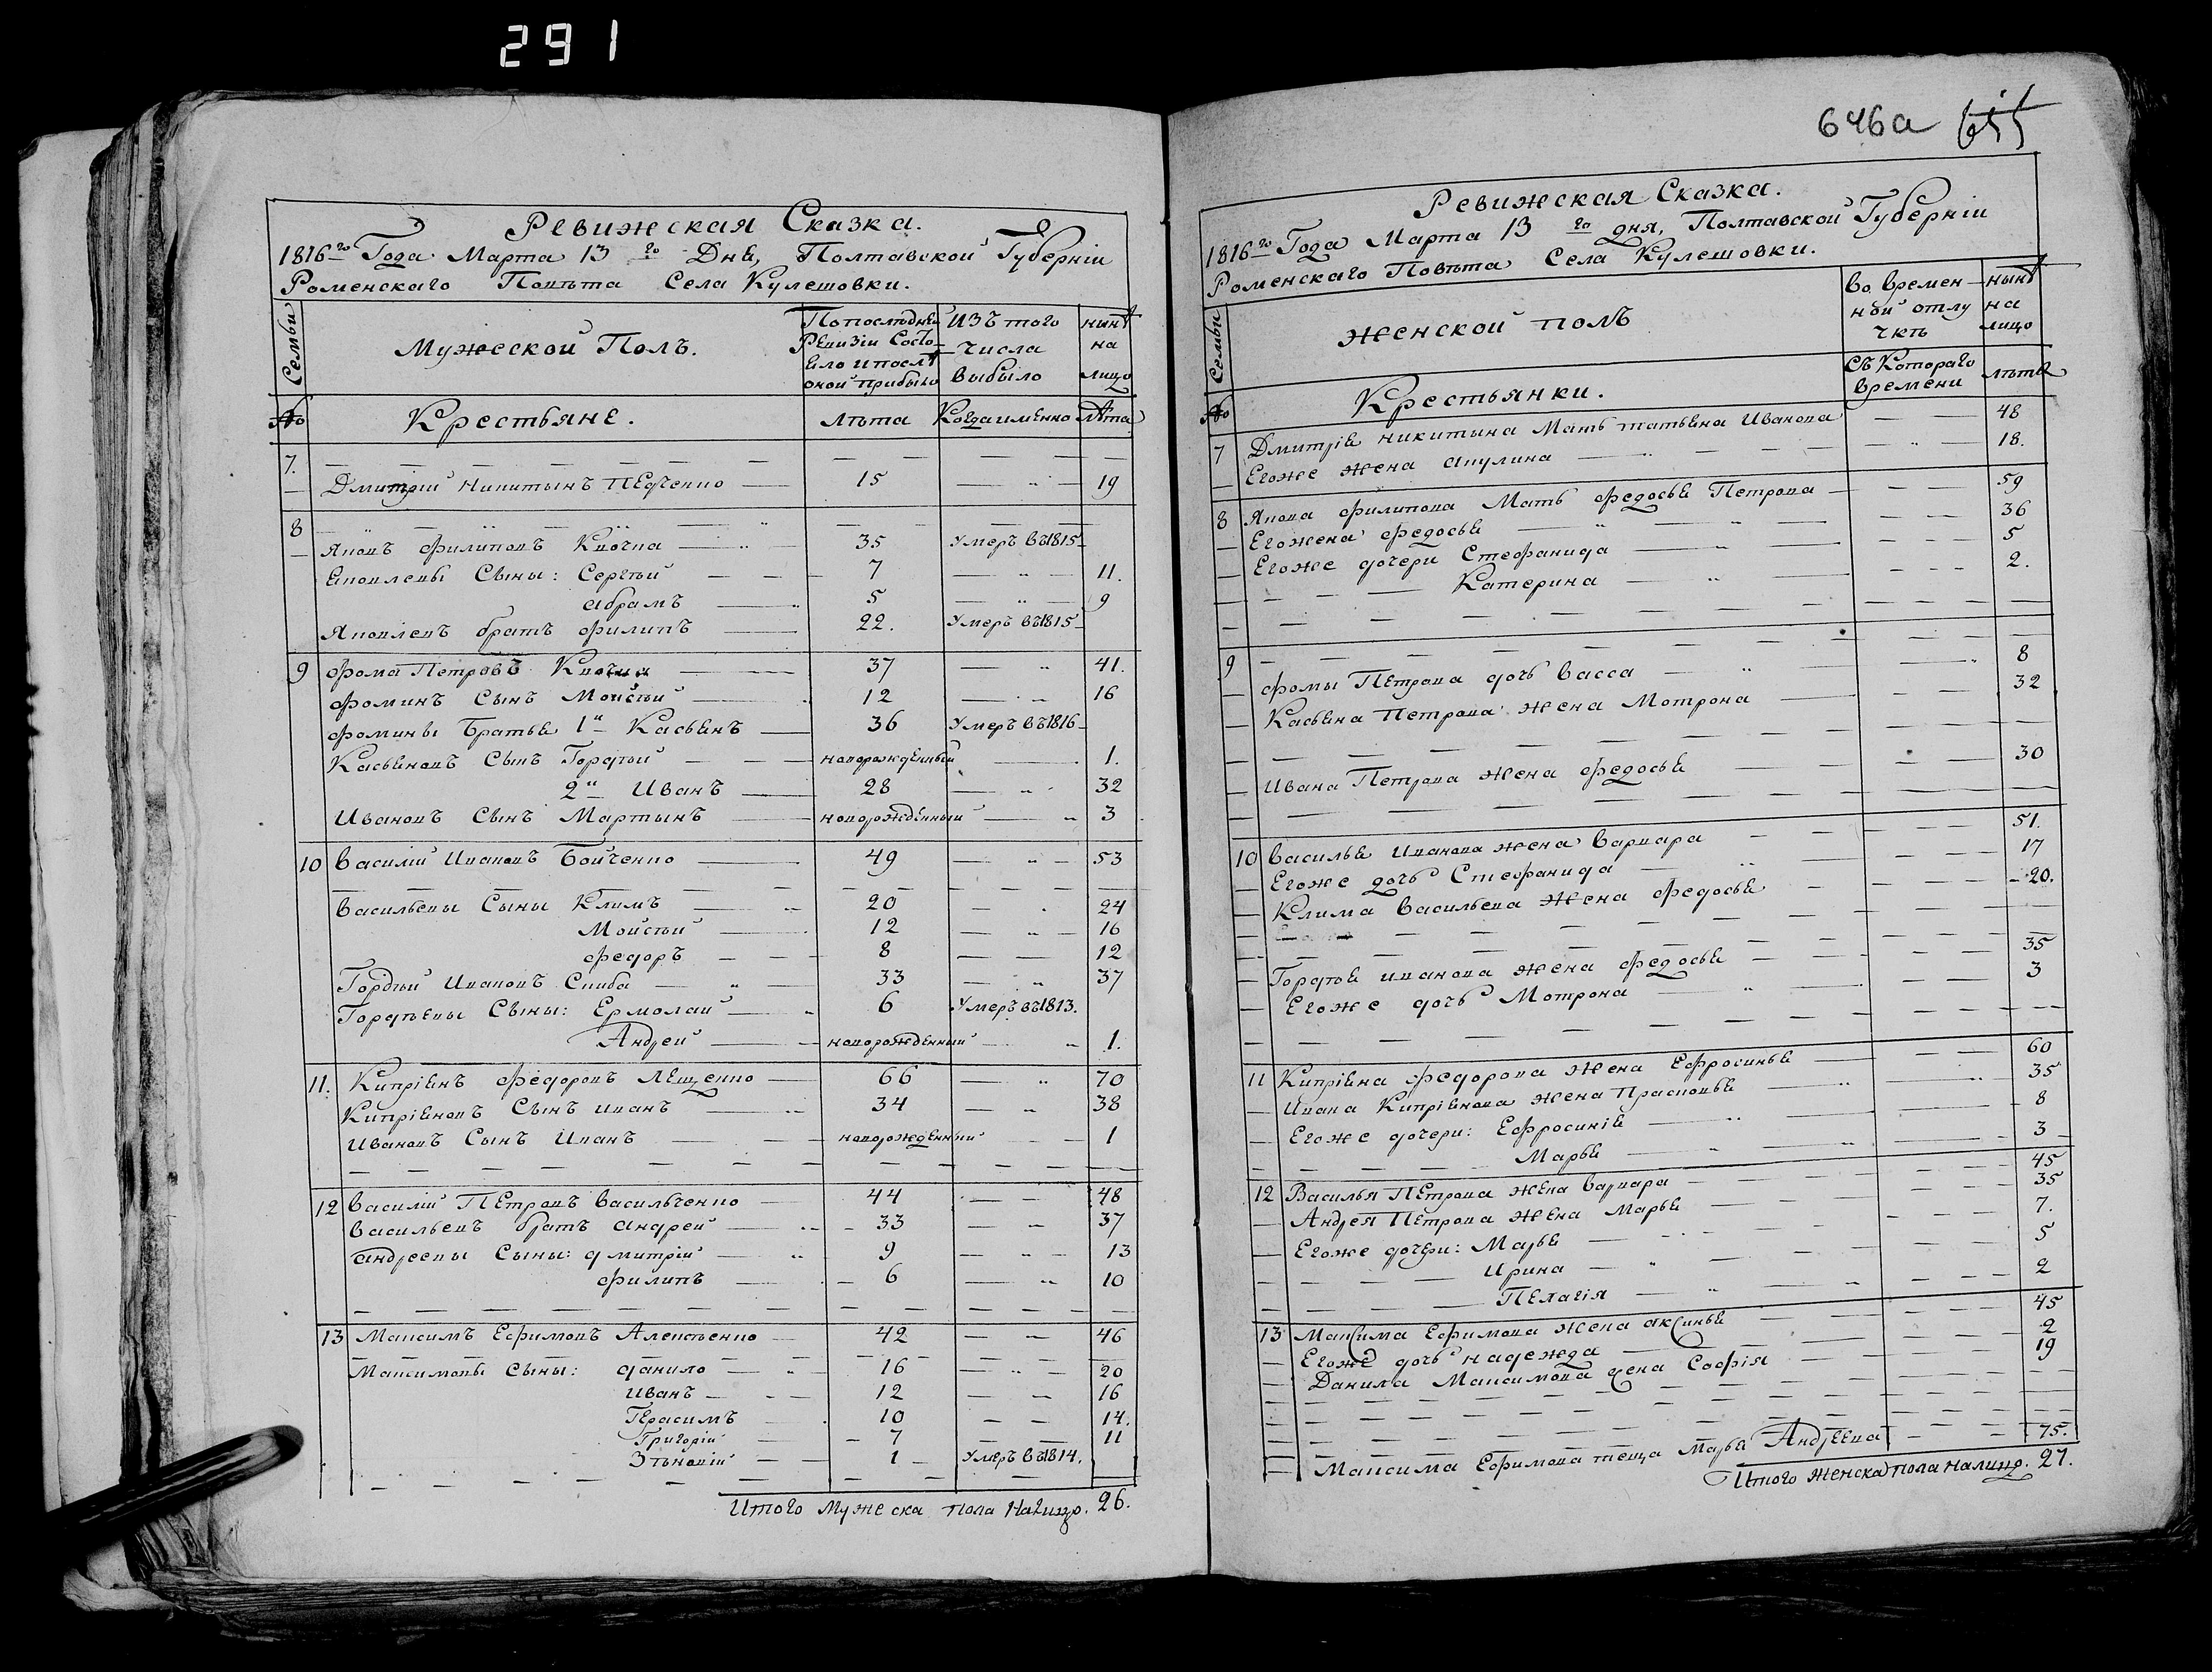 291
Ревижская Сказка.
1816го Года Марта 13го Дня, Полтавской Губерніи
Роменскаго Повѣта Села Кулешовки.
Семьи
Мужеской Полъ.
По последней Ревизіи Состояло и послѣ оной прибыло
Изъ того числа выбыло
нынѣ на лицо
№
Крестьяне.
лѣта
Когда именно
лѣта
7.
Дмитрій Никитынъ Педченко 15 19
8
Яковъ Филиповъ Квочка 35 Умеръ въ 1815
Яковлевы Сыны: Сергѣй 7 11.
Абрамъ 5 9
Яковлевъ братъ Филипъ 22. Умеръ въ 1815
9 Фома Петровъ Квочка 37 41.
Фоминъ Сынъ Мойсѣй 12 16
Фомины Братья 1й Касьянъ 36 Умеръ въ 1816
Касьяновъ Сынъ Гордѣй новорожденный 1.
2й Иванъ 28 32
Ивановъ Сынъ Мартынъ новорожденный 3
10 Василій Ивановъ Бойченко 49 53
Васильевы Сыны Климъ 20 24
Мойсѣй 12 16
Федоръ 8 12
Гордѣй Ивановъ Скиба 33 37
Гордѣевы Сыны: Ермолай 6 Умеръ въ 1813.
Андрей новорожденный 1.
11. Кипріянъ Федоровъ Лещенко 66 70
Кипріяновъ Сынъ Иванъ 34 38
Ивановъ Сынъ Иванъ новорожденный 1
12 Василій Петровъ Васильченко 44 48
Васильевъ братъ Андрей 33 37
Андреевы Сыны: Дмитрій 9 13
Филипъ 6 10
13 Максимъ Ефимовъ Алексѣенко 42 46
Максимовы Сыны: Данило 16 20
Иванъ 12 16
Герасимъ 10 14.
Григорій 7 11
Зѣновій 1 Умеръ въ 1814.
Итого Мужеска пола Налицо. 26.
646а
Ревижская Сказка.
1816го Года Марта 13го дня, Полтавской Губерніи
Роменскаго Повѣта Села Кулешовки.
Семьи
Женской полъ
Во временной отлучкѣ
нынѣ на лицо
Съ Котораго времени
лѣта
№
Крестьянки.
7 Дмитрія Никитына Мать татьяна Иванова 48
Егоже жена акулина 18.
8 Якова Филипова Мать Федосья Петрова 59
Его жена Федосья 36
Егоже дочери Стефанида 5
Катерина 2.
9
Фомы Петрова дочь Васса 8
Касьяна Петрова жена Мотрона 32
Ивана Петрова жена Федосья 30
10 Василья Иванова жена Варвара 51.
Егоже дочь Стефанида 17
Клима Васильева жена Федосья 20.
Гордѣя иванова жена Федосья 35
Егоже дочь Мотрона 3
11 Кипріяна Федорова жена Ефросинья 60
Ивана Кипріянова жена Прасковья 35
Егоже дочери: Ефросинія 8
Марья 3
12 Василья Петрова жена Варвара 45
Андрея Петрова жена Марья 35
Егоже дочери: Марья 7.
Ирина 5
Пелагія 2
13 Максима Ефимова жена аксинья 45
Егоже дочь надежда 2
Данила Максимова жена Софія 19
Максима Ефимова теща Марья Андреева 75.
Итого Женска пола налицо. 27.